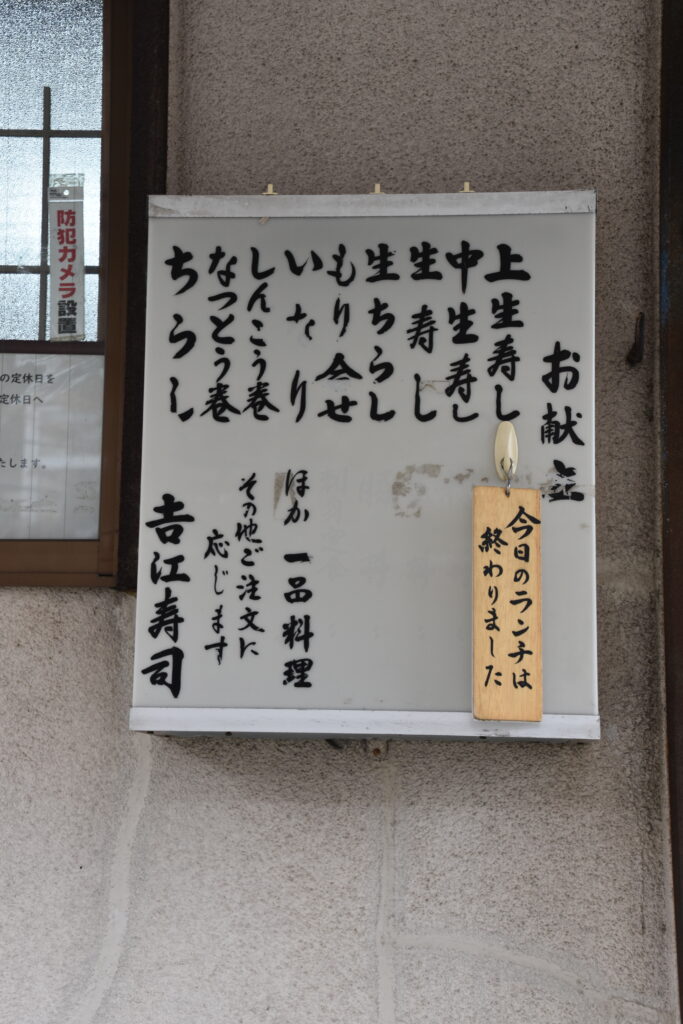 お献立
上生寿し
中生寿し
生寿し
生ちらし
もり合せ
いなり
しんこう巻
なつとう巻
ちらし
ほか 一品料理
その他ご注文に
応じます
吉江寿司
今日のランチは
終わりました
防犯カメラ設置
の定休日を
定休日へ
たします。